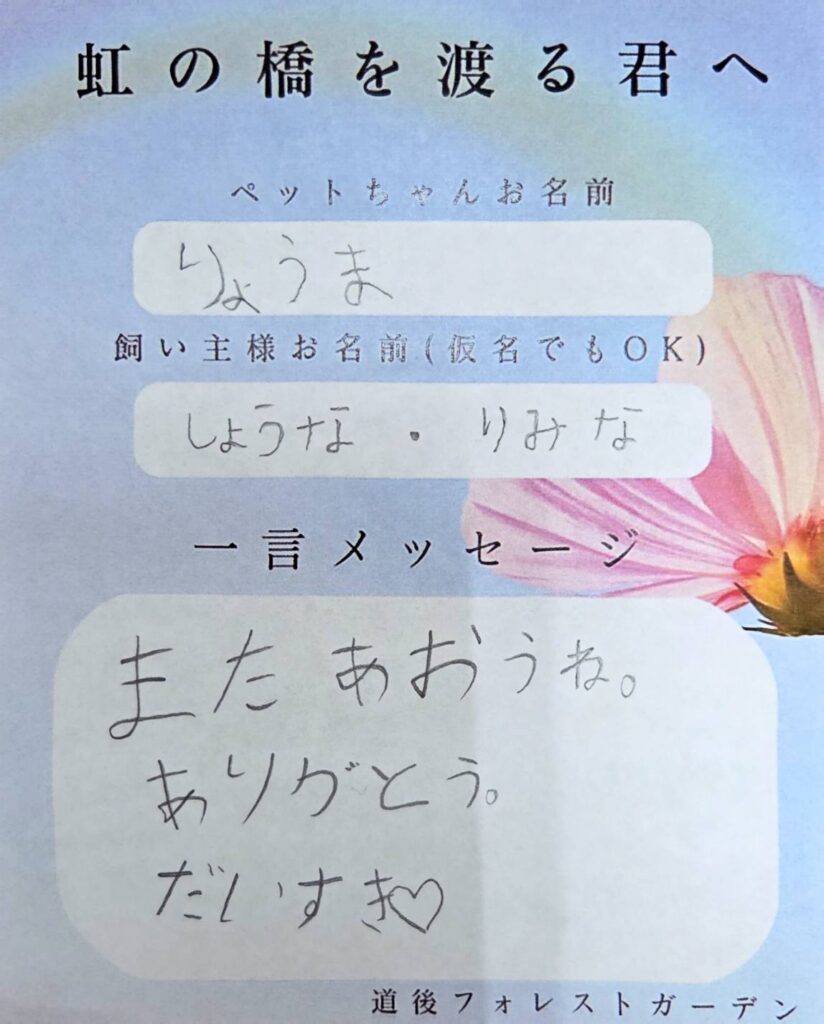 虹の橋を渡る君へ
ペットちゃんお名前
りょうま
飼い主様お名前(仮名でもOK)
しょうな・りみな
一言メッセージ
またあおうね。
ありがとう。
だいすき♡
道後フォレストガーデン